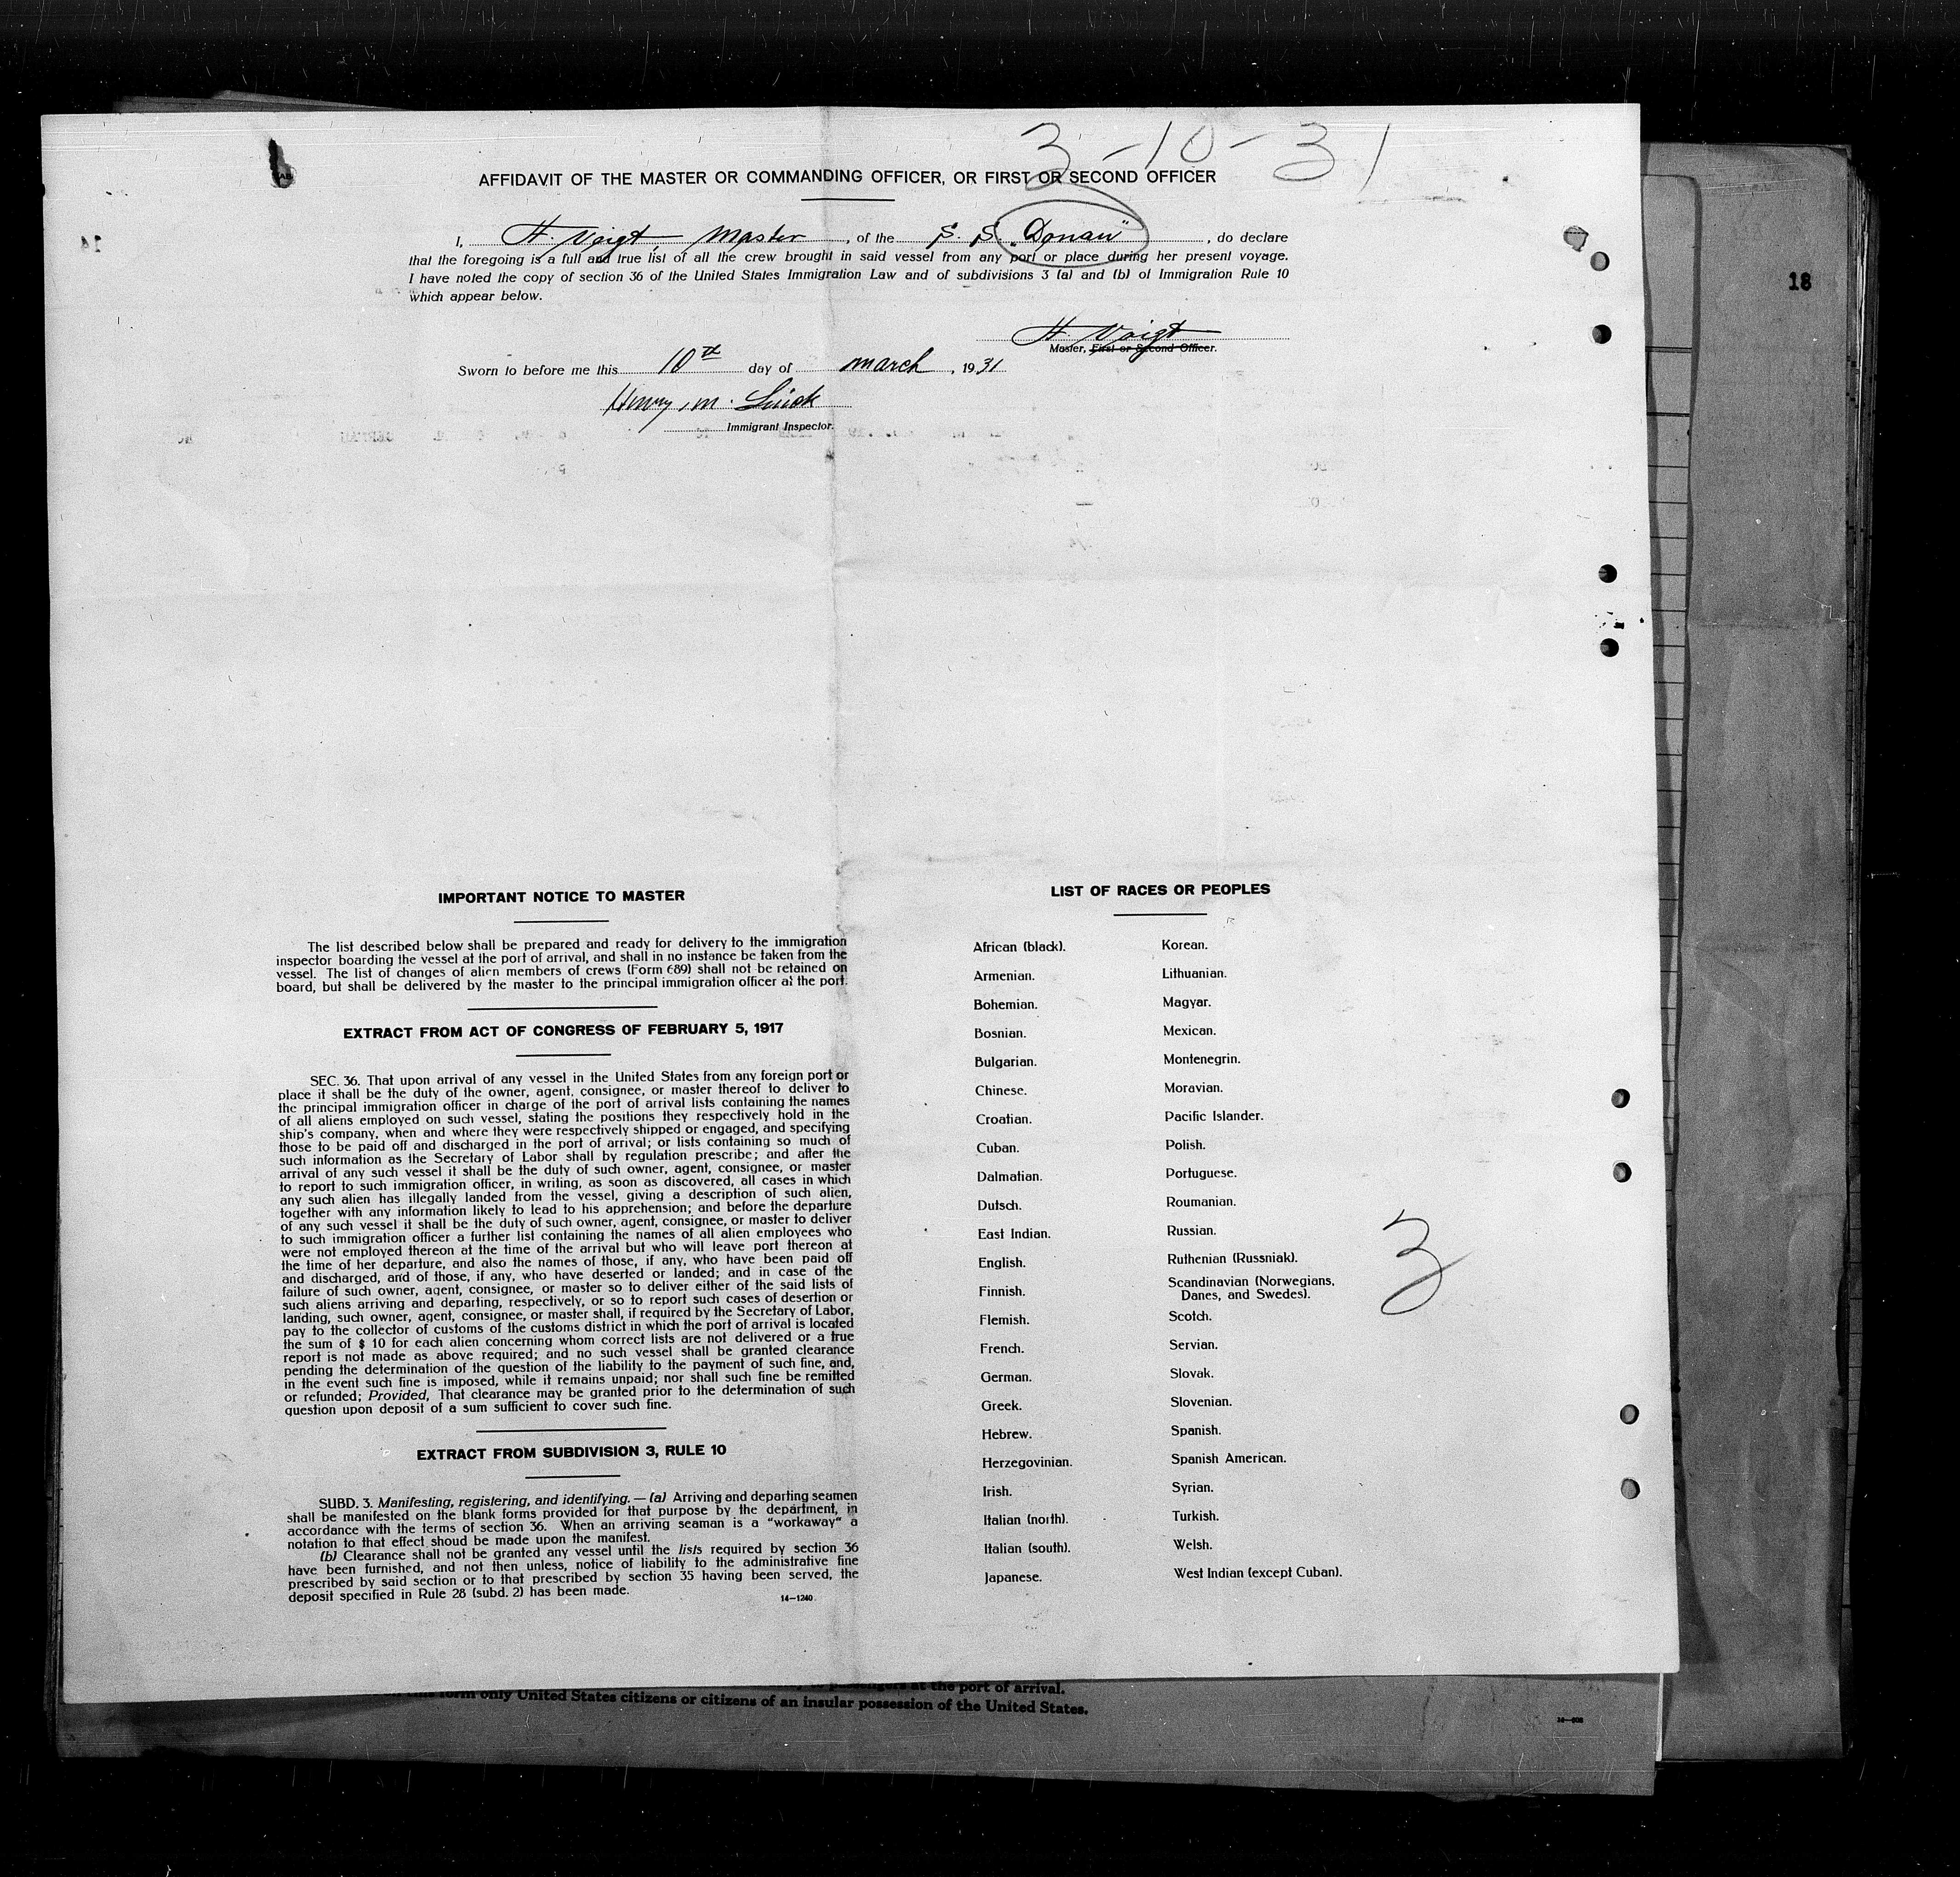 3-10-31
AFFIDAVIT OF THE MASTER OR COMMANDING OFFICER, OR FIRST OR SECOND OFFICER
I, H. Voigt, Master, of the S. S. „Donau", do declare
that the foregoing is a full and true list of all the crew brought in said vessel from any port or place during her present voyage.
I have noted the copy of section 36 of the United States Immigration Law and of subdivisions 3 (a) and (b) of Immigration Rule 10
which appear below.
H. Voigt
Master, First or Second Officer.
Sworn to before me this 10th day of march, 1931
Henry M.
Immigrant Inspector.
18
IMPORTANT NOTICE TO MASTER
The list described below shall be prepared and ready for delivery to the immigration
inspector boarding the vessel at the port of arrival, and shall in no instance be taken from the
vessel. The list of changes of alien members of crews (Form 689) shall not be retained on
board, but shall be delivered by the master to the principal immigration officer at the port.
EXTRACT FROM ACT OF CONGRESS OF FEBRUARY 5, 1917
SEC. 36. That upon arrival of any vessel in the United States from any foreign port or
place it shall be the duty of the owner, agent, consignee, or master thereof to deliver to
the principal immigration officer in charge of the port of arrival lists containing the names
of all aliens employed on such vessel, stating the positions they respectively hold in the
ship's company, when and where they were respectively shipped or engaged, and specifying
those to be paid off and discharged in the port of arrival; or lists containing so much of
such information as the Secretary of Labor shall by regulation prescribe; and after the
arrival of any such vessel it shall be the duty of such owner, agent, consignee, or master
to report to such immigration officer, in writing, as soon as discovered, all cases in which
any such alien has illegally landed from the vessel, giving a description of such alien,
together with any information likely to lead to his apprehension; and before the departure
of any such vessel it shall be the duty of such owner, agent, consignee, or master to deliver
to such immigration officer a further list containing the names of all alien employees who
were not employed thereon at the time of the arrival but who will leave port thereon at
the time of her departure, and also the names of those, if any, who have been paid off
and discharged, and of those, if any, who have deserted or landed; and in case of the
failure of such owner, agent, consignee, or master so to deliver either of the said lists of
such aliens arriving and departing, respectively, or so to report such cases of desertion or
landing, such owner, agent, consignee, or master shall, if required by the Secretary of Labor,
pay to the collector of customs of the customs district in which the port of arrival is located
the sum of $ 10 for each alien concerning whom correct lists are not delivered or a true
report is not made as above required; and no such vessel shall be granted clearance
pending the determination of the question of the liability to the payment of such fine, and,
in the event such fine is imposed, while it remains unpaid; nor shall such fine be remitted
or refunded; Provided, That clearance may be granted prior to the determination of such
question upon deposit of a sum sufficient to cover such fine.
EXTRACT FROM SUBDIVISION 3, RULE 10
SUBD. 3. Manifesting, registering, and identifying. — (a) Arriving and departing seamen
shall be manifested on the blank forms provided for that purpose by the department, in
accordance with the terms of section 36. When an arriving seaman is a "workaway" a
notation to that effect shoud be made upon the manifest.
(b) Clearance shall not be granted any vessel until the lists required by section 36
have been furnished, and not then unless, notice of liability to the administrative fine
prescribed by said section or to that prescribed by section 35 having been served, the
deposit specified in Rule 28 (subd. 2) has been made.
14—1240
LIST OF RACES OR PEOPLES
African (black).
Armenian.
Bohemian.
Bosnian.
Bulgarian.
Chinese.
Croatian.
Cuban.
Dalmatian.
Dutsch.
East Indian.
English.
Finnish.
Flemish.
French.
German.
Greek.
Hebrew.
Herzegovinian.
Irish.
Italian (north).
Italian (south).
Japanese.
Korean.
Lithuanian.
Magyar.
Mexican.
Montenegrin.
Moravian.
Pacific Islander.
Polish.
Portuguese.
Roumanian.
Russian.
Ruthenian (Russniak).
Scandinavian (Norwegians,
Danes, and Swedes).
Scotch.
Servian.
Slovak.
Slovenian.
Spanish.
Spanish American.
Syrian.
Turkish.
Welsh.
West Indian (except Cuban).
3
at the port of arrival.
form only United States citizens or citizens of an insular possession of the United States.